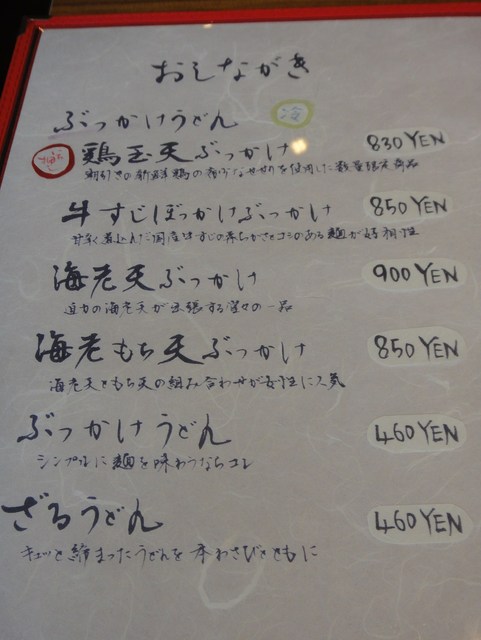 おしながき
ぶっかけうどん
冷
鶏玉天ぶっかけ 830 YEN
朝引きの新鮮鶏の希少なせせりを使用した数量限定商品
牛すじぼっかけぶっかけ 850 YEN
甘辛く煮込んだ国産牛すじの柔らかさとコシのある麺が好相性
海老天ぶっかけ 900 YEN
迫力の海老天が主張する堂々の一品
海老もち天ぶっかけ 850 YEN
海老天ともち天の組み合わせが女性に人気
ぶっかけうどん 460 YEN
シンプルに麺を味わうならコレ
ざるうどん 460 YEN
キュッと締まったうどんを本わさびとともに